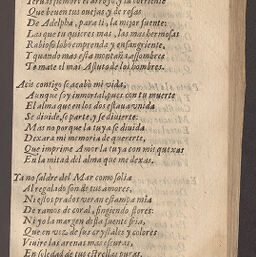 Que beuen tus ouejas y de rosas
De Adelpha, para ti, la mejor suente:
Las que tu quieres mas, las mas hermosas
Rabioso lobo emprenda y ensangriente,
Y quando mas esta montaña assombres
Te mate el mas Astuto de los hombres.
Atis contigo se acabò mi vida,
Aunque soy inmortal, pues con tu muerte
El alma que en los dos estaua vnida
Se diuide, se parte, y se diuierte:
Mas no porque la tuya se diuida
Dexara mi memoria de quererte,
Que imprime Amor la tuya con mis quexas
En la mitad del alma que me dexas.
Ya no saldre del Mar como solia
Al regalado son de tus amores,
Ni estos prados veran estampa mia
De ramos de coral, fingiendo flores:
Ni yo la margen desta fuente fria,
Que en vez de sus crystales y colores
Viuire las arenas mas escuras,
En soledad de tus estrellas puras.